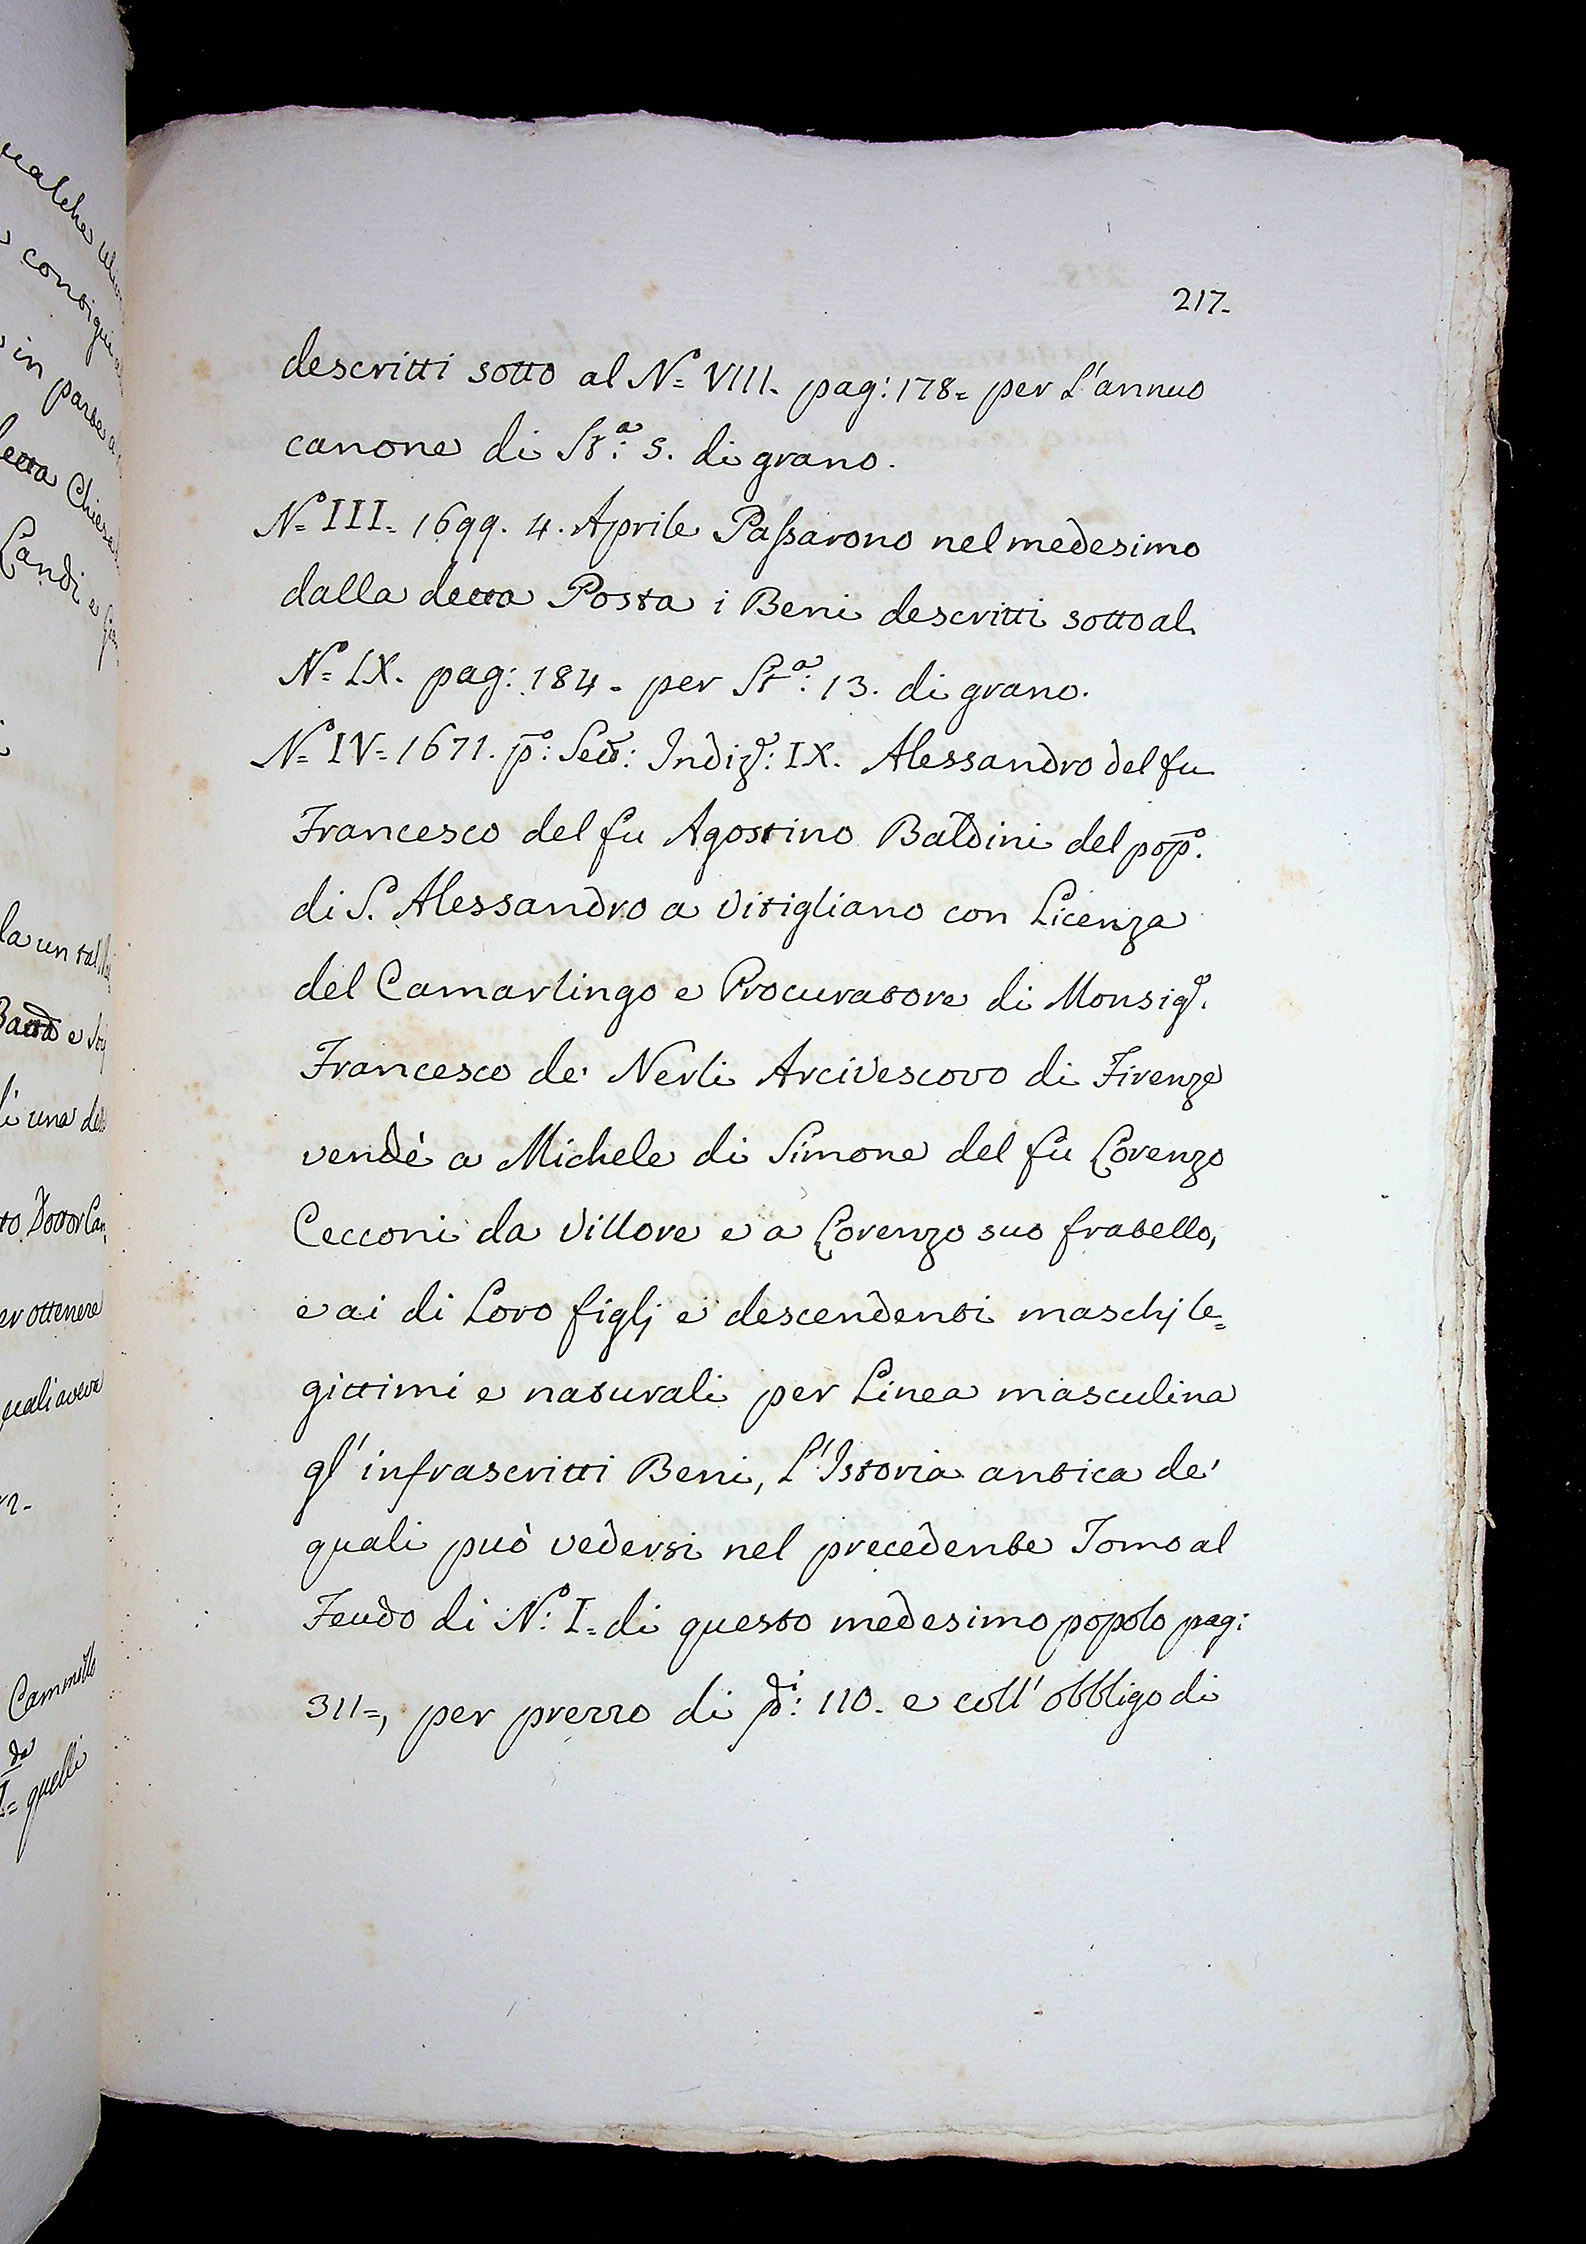 217.
descritti sotto al N.º VIII. pag: 178= per L'annuo
canone di St.ª: 5. di grano.
N.º III. 1699. 4. Aprile Passarono nel medesimo
dalla detta Posta i Beni descritti sotto al
N.º IX. pag: 184. per St.ª: 13. di grano.
N.º IV= 1671. p.º: Indiz.e: IX. Alessandro del fu
Francesco del fu Agostino Baldini del pop.º
di S. Alessandro a Vitigliano con Licenza
del Camarlingo e Procuratore di Monsig.e
Francesco de' Nerli Arcivescovo di Firenze
vendè a Michele di Simone del fu Lorenzo
Cecconi da Villore e a Lorenzo suo fratello,
e ai di Loro figlj e descendenti maschj le=
gittimi e naturali per Linea masculina
gl' infrascritti Beni, L'Istoria antica de'
quali può vedersi nel precedente Tomo al
Feudo di N.º I= di questo medesimo popolo pag:
311=, per prezzo di 110. e coll' obbligo di
qualche
in parte
detta Chiesa
Landi e
la un tal
Batta e
di una
to Dottor
er ottenere
quali aveva
Cammillo
da
quelli